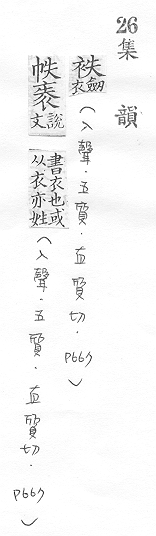 26集韻
袟劒衣(入聲·五質·直質切·P667)
帙袠說文書衣也或从衣亦姓(入聲·五質·直質切·P667)